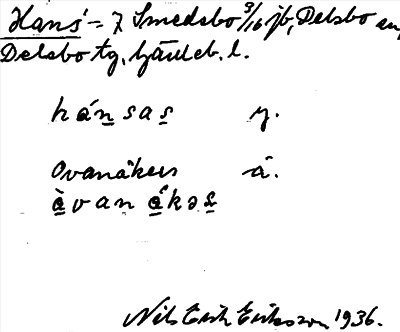 Hans' = 7 Smedsbo 3/16 jb, Delsbo sn,
Delsbo tg, Gävleb. l.
hánsas y.
Ovanåkers å.
àvanåkəs
Nils Erik Eriksson 1936.